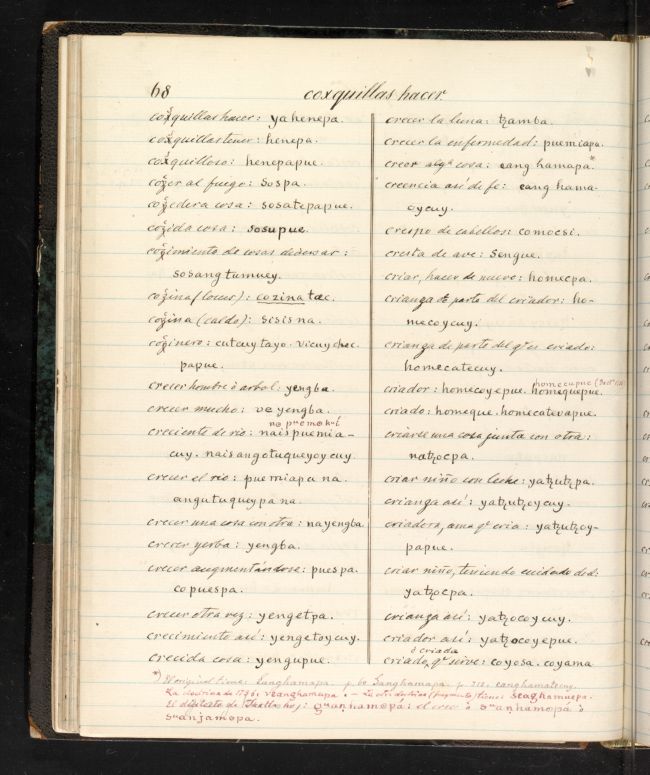 68
coxquillas hacer.
coxquillas hacer: yahenepa.
coxquillas tener: henepa.
coxquilloso: henepapue.
cozer al fuego: sospa.
cozedera cosa: sosatepapue.
cozida cosa: sosupue.
cozimiento de cosas diversas:
sosangtumuey.
cozina (locus): cozinatæc.
cozina (caldo): sisisna.
cozinero: cutcuytayo. vicuychec
papue.
crecer hombre ò arbol: yengba.
crecer mucho: vo yengba.
creciente de rio: naispuemia-
cuy. naisangotuqueyoycuy.
crecer el rio: puemiapa na.
angutuqueypa na.
crecer una cosa con otra: nayengba.
crecer yerba: yengba.
crecer augmentándose: puespa.
copuespa.
crecer otra vez: yengetpa.
crecimiento asi: yengetoycuy.
crecida cosa: yengupue.
crecer la luna: tzamba.
crecer la enfermedad: puemiapa.
creer algª cosa: cang hamapa*
creencia así de fe: cang hama-
oycuy.
crespo de cabellos: comocsi.
cresta de ave: sengue.
criar, hacer de nuevo: homecpa.
crianza de parte del criador: ho-
mecoycuy.
crianza de parte del qº es criado:
homecatecuy.
criador: homecoyepue. homequepue.
criado: homeque. homecatevapue.
criarse una cosa junta con otra:
natzocpa.
criar niño con leche: yatzutzpa.
crianza así: yatzutzoycuy.
criadora, ama qº cria: yatzutzoy-
papue.
criar niño, teniendo cuidado del:
yatzocpa.
crianza asi: yatzocoycuy.
criador así: yatzocoyepue.
ò criada
criado, qº sirve: coyosa. coyama
*) El original tiene: canghamapa. p. 60 canghamapa. p. 212. canghamatecuy.
La doctrina de 1736: vzanghamapa. — La otra doctrina (fragmento) tiene:
El dialecto de Tuxtla hoy: el creer ò